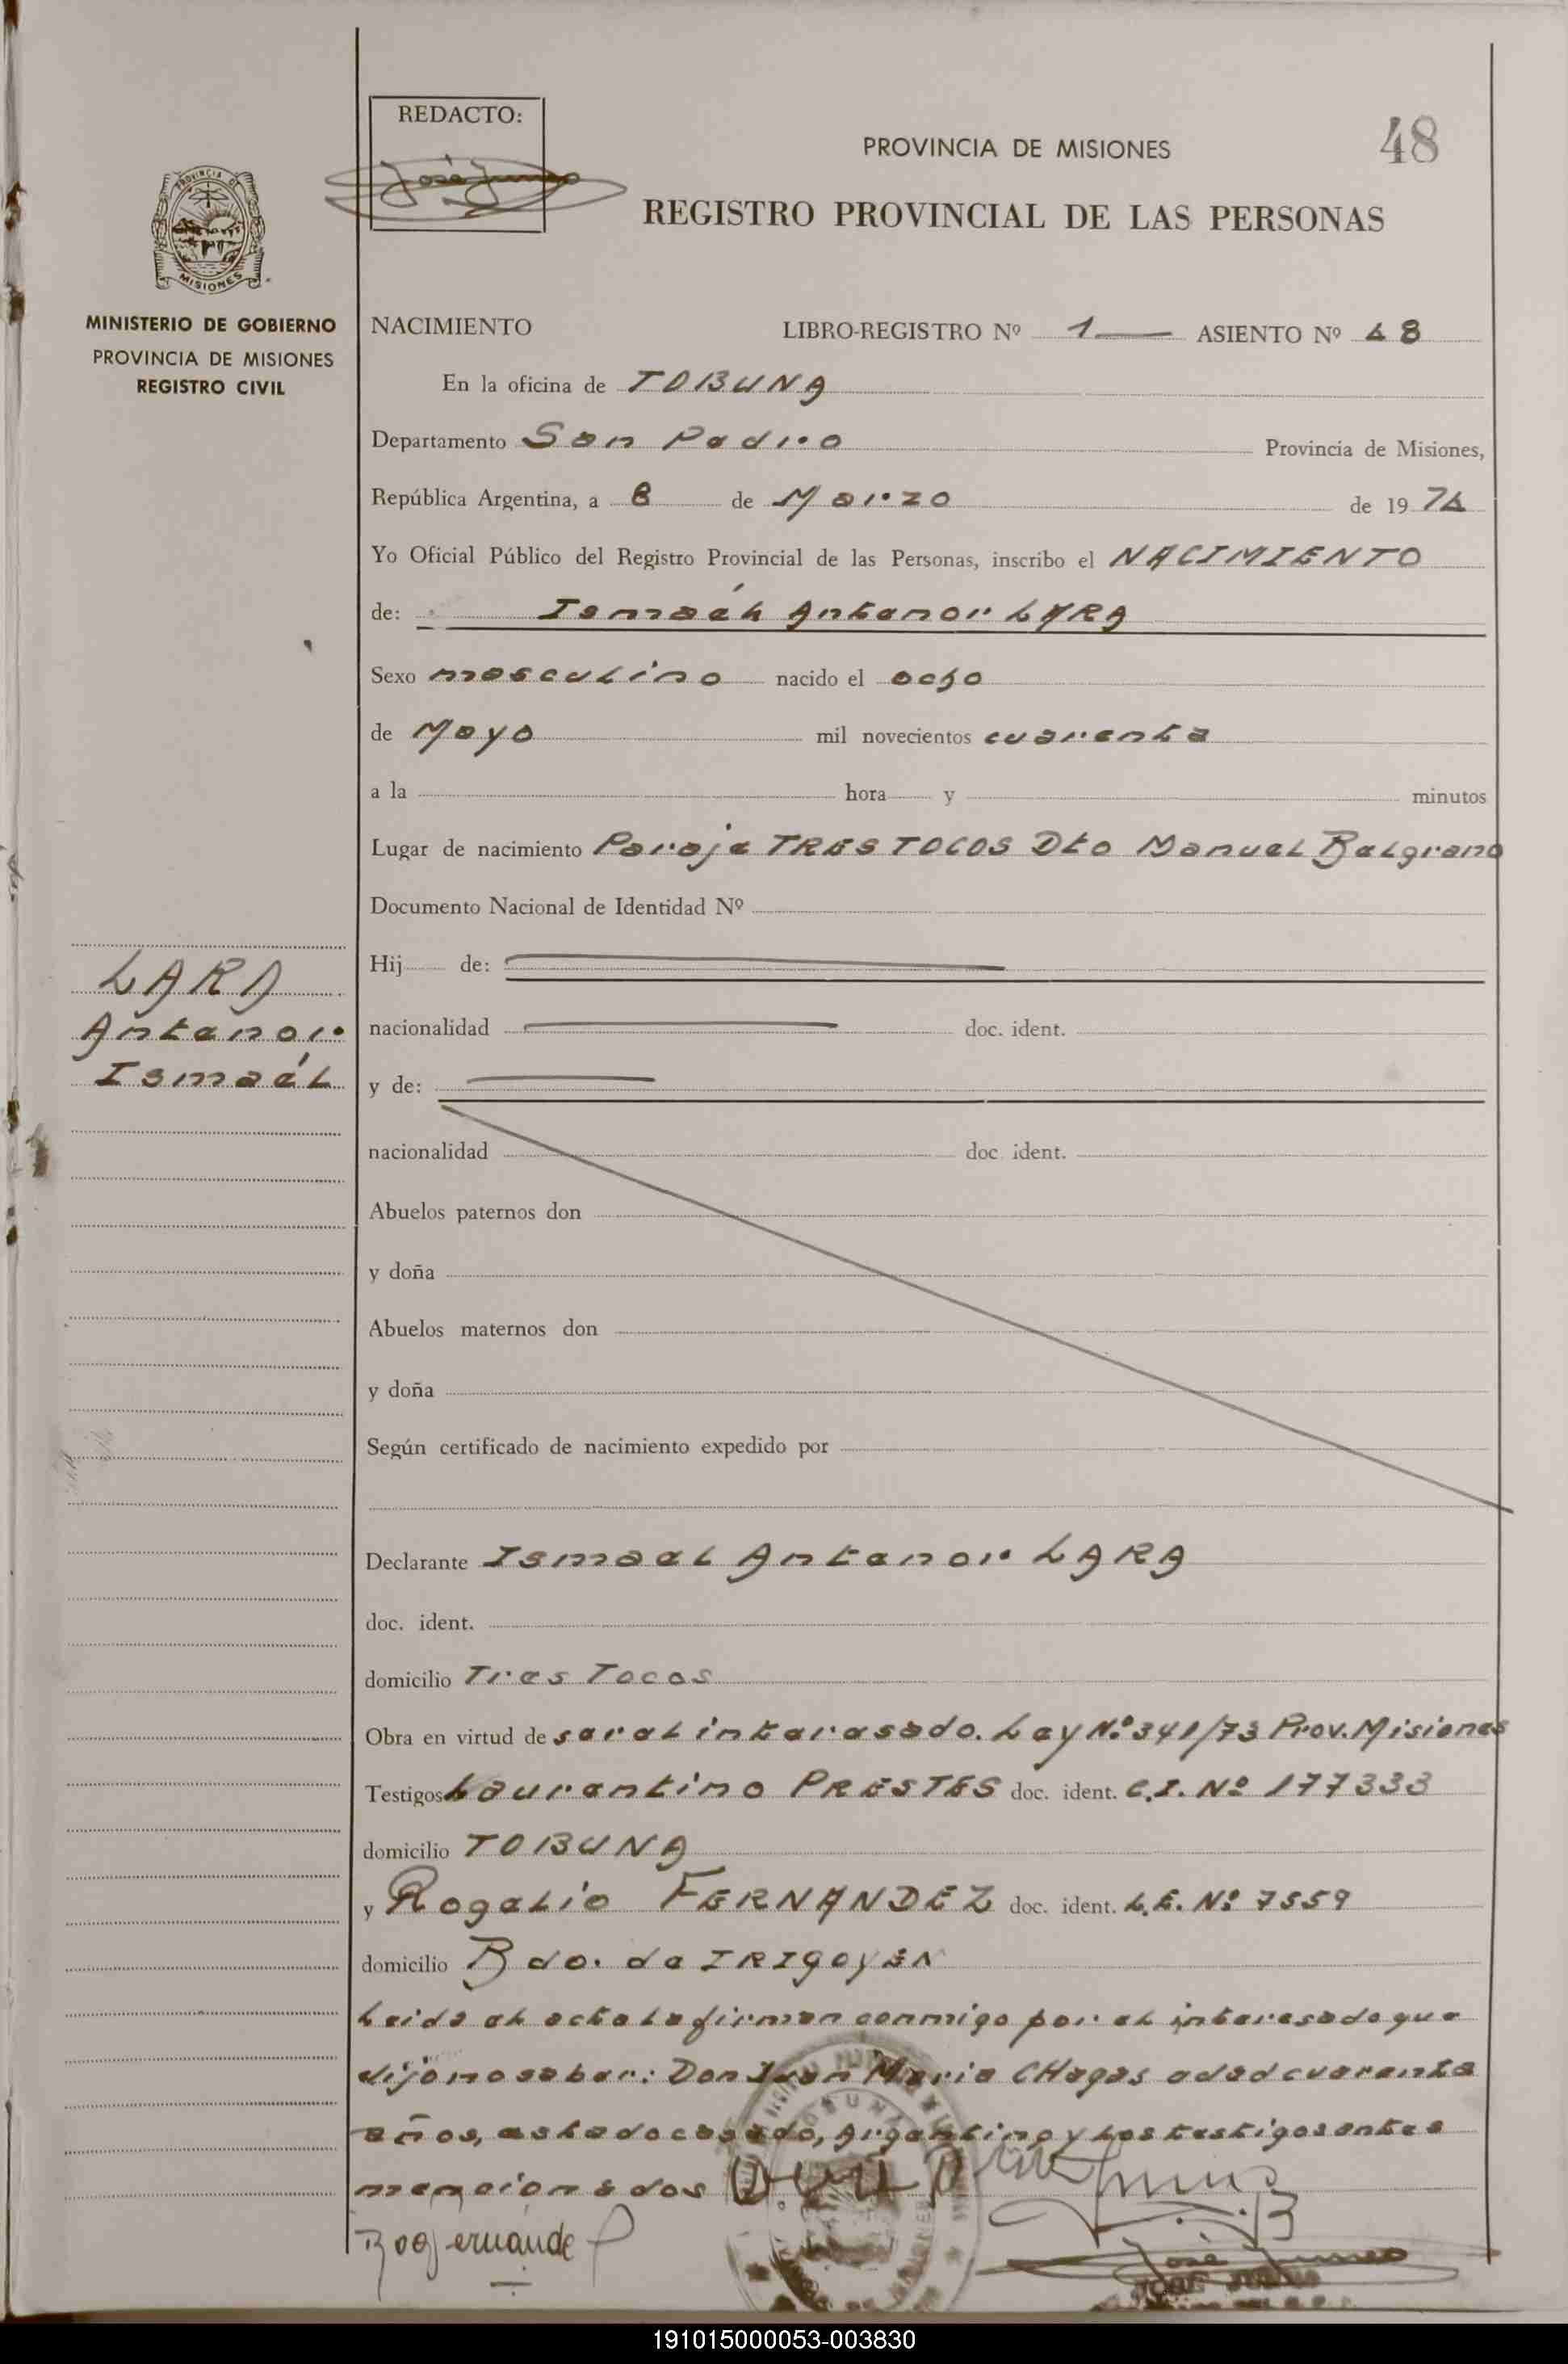 REDACTO:
José Junco
PROVINCIA DE MISIONES
48
REGISTRO PROVINCIAL DE LAS PERSONAS
PROVINCIA DE
MISIONES
MINISTERIO DE GOBIERNO
PROVINCIA DE MISIONES
REGISTRO CIVIL
NACIMIENTO LIBRO-REGISTRO Nº 1 ASIENTO Nº 48
En la oficina de TOBUNA
Departamento San Pedro Provincia de Misiones,
República Argentina, a 8 de Marzo de 1974
Yo Oficial Público del Registro Provincial de las Personas, inscribo el NACIMIENTO
de: Ismaél Antenor LARA
Sexo masculino nacido el ocho
de Mayo mil novecientos cuarenta
a la hora y minutos
Lugar de nacimiento Paraje TRES TOCOS Dto Manuel Belgrano
Documento Nacional de Identidad Nº
Hij de:
LARA
Antenor
Ismaél
nacionalidad doc. ident.
y de:
nacionalidad doc. ident.
Abuelos paternos don
y doña
Abuelos maternos don
y doña
Según certificado de nacimiento expedido por
Declarante Ismael Antenor LARA
doc. ident.
domicilio Tres Tocos
Obra en virtud de ser el interesado. Ley Nº 341/73 Prov. Misiones
Testigos Laurentino PRESTES doc. ident. C.I. Nº 177333
domicilio TOBUNA
y Rogelio FERNANDEZ doc. ident. L.E. Nº 7559
domicilio Bdo. de IRIGOYEN
Leida el acta la firman conmigo por el interesado que
dijo no saber: Don Juan Maria CHagas edad cuarenta
años, estado casado, Argentino y los testigos antes
mencionados
Rog Fernande
José Junco
191015000053-003830